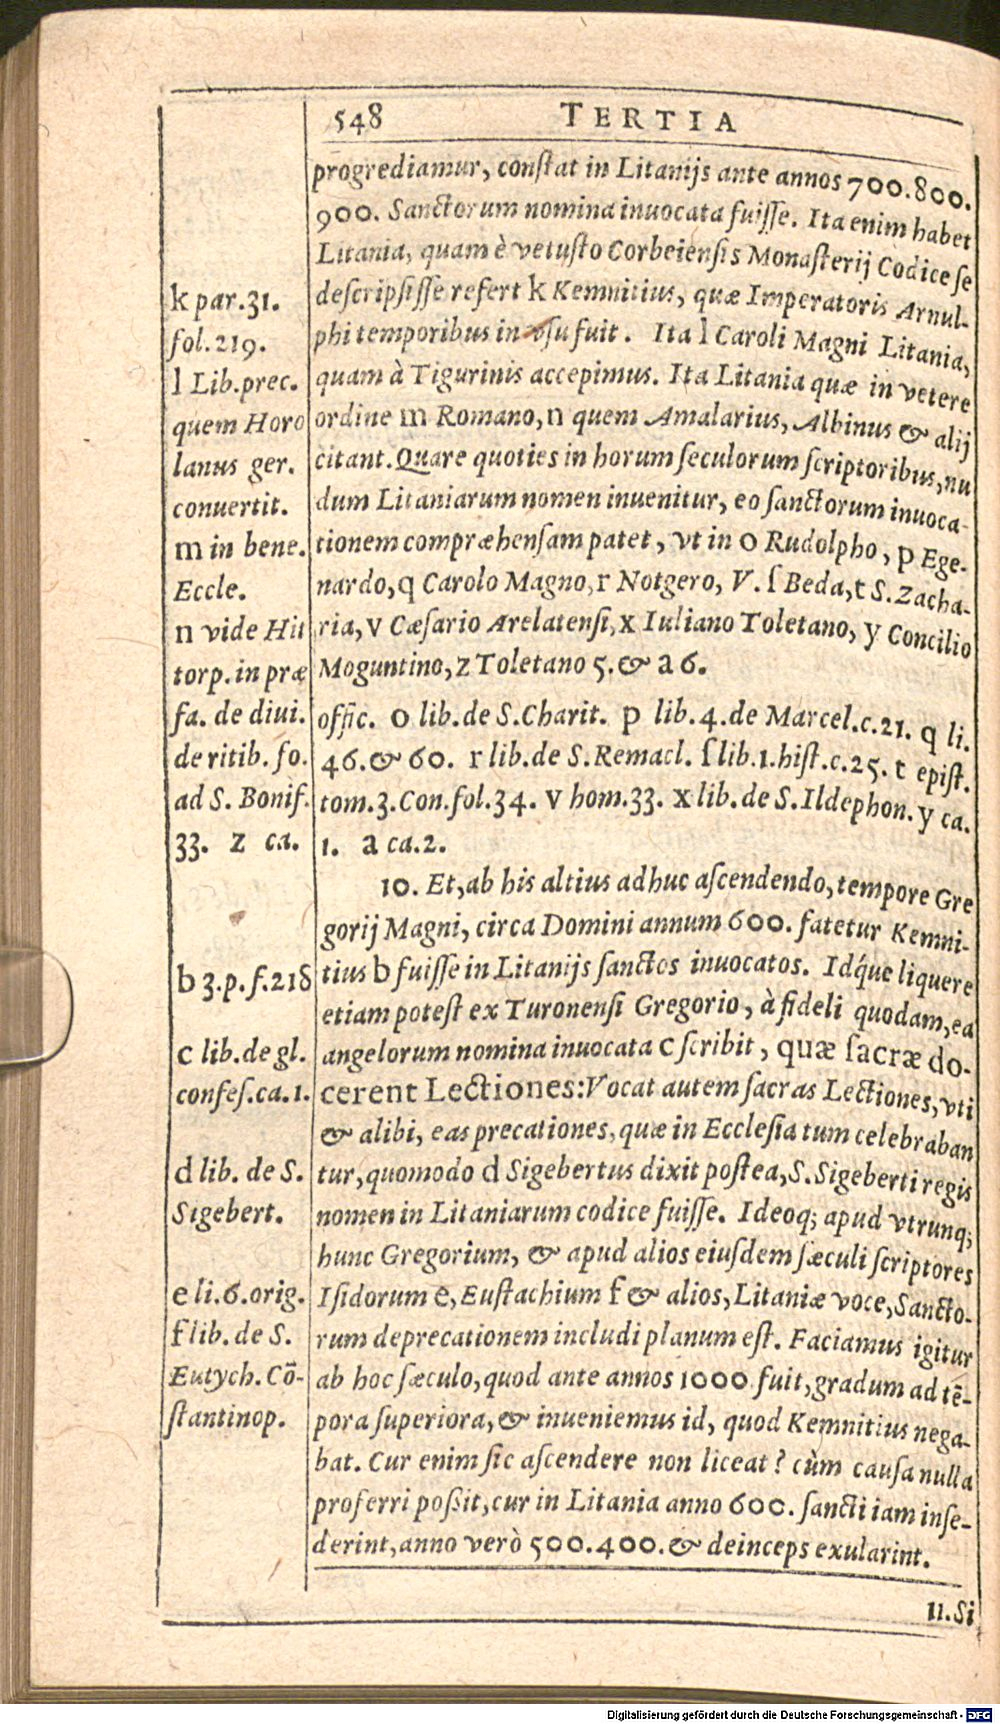 548 TERTIA
progrediamur, conſtat in Litanijs ante annos 700.800.
900. Sanctorum nomina inuocata fuiſſe. Ita enim habet
Litania, quam è vetuſto Corbeienſis Monaſterij Codice ſe
deſcripſiſſe refert k Kemnitius, quæ Imperatoris Arnul-
phi temporibus in vſu fuit. Ita l Caroli Magni Litania,
quam à Tigurinis accepimus. Ita Litania quæ in vetere
ordine m Romano, n quem Amalarius, Albinus & alij
citant. Quare quoties in horum ſeculorum ſcriptoribus, nu
dum Litaniarum nomen inuenitur, eo ſanctorum inuoca-
tionem compræhenſam patet, vt in o Rudolpho, p Ege-
nardo, q Carolo Magno, r Notgero, V. ſ Beda, t S. Zacha-
ria, v Cæſario Arelatenſi, x Iuliano Toletano, y Concilio
Moguntino, z Toletano 5. & a 6.
k par.31.
fol.219.
l Lib.prec.
quem Horo
lanus ger.
conuertit.
m in bene.
Eccle.
n vide Hit
torp. in præ
fa. de diui. offic. o lib.de S.Charit. p lib.4.de Marcel.c.21. q li.
de ritib. fo. 46.& 60. r lib.de S.Remacl. ſ lib.1.hiſt.c.25. t epiſt.
ad S. Bonif. tom.3.Con.fol.34. v hom.33. x lib.de S.Ildephon. y ca.
33. z ca. 1. a ca.2.
10. Et, ab his altius adhuc aſcendendo, tempore Gre
gorij Magni, circa Domini annum 600. fatetur Kemni-
tius b fuiſſe in Litanijs ſanctos inuocatos. Idq́ue liquere
etiam poteſt ex Turonenſi Gregorio, à fideli quodam, ea
angelorum nomina inuocata c ſcribit, quæ ſacræ do-
cerent Lectiones: Vocat autem ſacras Lectiones, vti
& alibi, eas precationes, quæ in Eccleſia tum celebraban
tur, quomodo d Sigebertus dixit poſtea, S. Sigeberti regis
nomen in Litaniarum codice fuiſſe. Ideoq; apud vtrunq;
hunc Gregorium, & apud alios eiuſdem ſæculi ſcriptores
Iſidorum e, Euſtachium f & alios, Litaniæ voce, Sancto-
rum deprecationem includi planum eſt. Faciamus igitur
ab hoc ſæculo, quod ante annos 1000 fuit, gradum ad tē-
pora ſuperiora, & inueniemus id, quod Kemnitius nega-
bat. Cur enim ſic aſcendere non liceat? cùm cauſa nulla
proferri poßit, cur in Litania anno 600. ſancti iam inſe-
derint, anno verò 500.400. & deinceps exularint.
b 3.p.f.218
c lib.de gl.
confeſ.ca.1.
d lib. de S.
Sigebert.
e li.6.orig.
f lib. de S.
Eutych. Cō-
ſtantinop.
11. Si
Digitalisierung gefördert durch die Deutsche Forschungsgemeinschaft - DFG